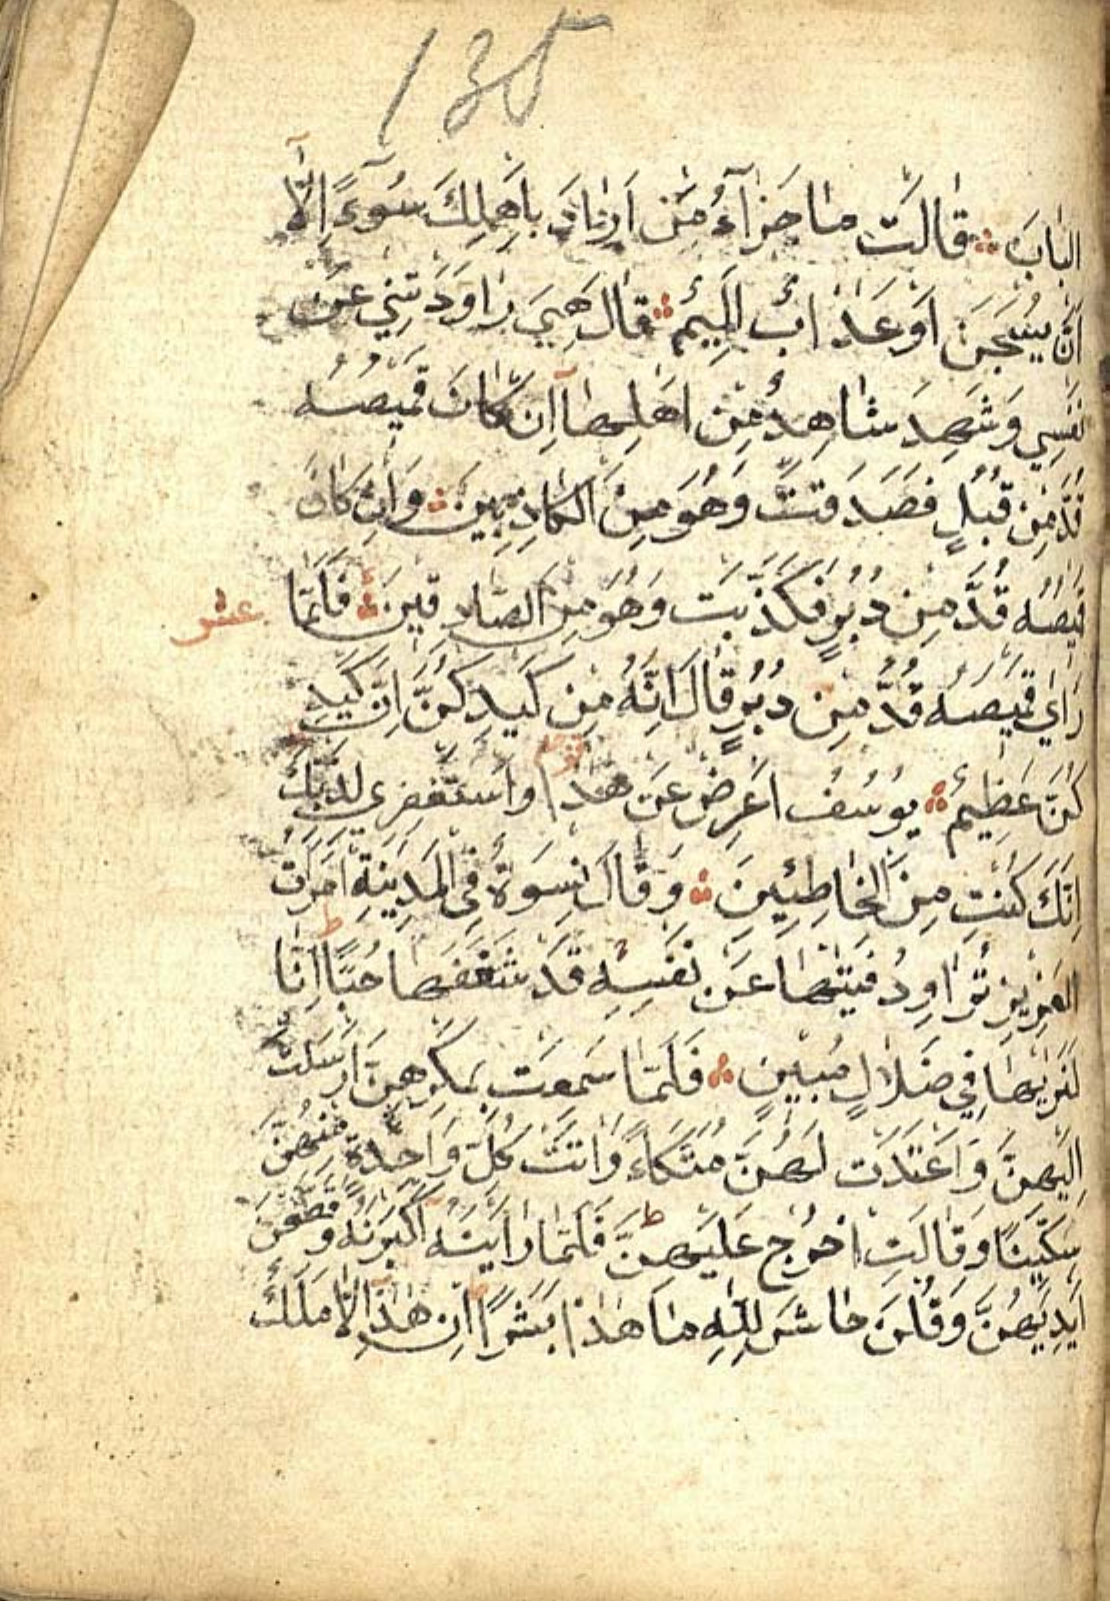 135
الْبَابَ قَالَتْ مَا جَزَآءُ مَنْ اَرَادَ بِاَهْلِكَ سُوءً اِلَّا
اَنْ يُسْجَنَ اَوْ عَذَابٌ اَلِيمٌ قَالَ هِيَ رَاوَدَتْنِي عَنْ
نَفْسِي وَشَهِدَ شَاهِدٌ مِنْ اَهْلِهَا اِنْ كَانَ قَمِيصُهُ
قُدَّ مِنْ قُبُلٍ فَصَدَقَتْ وَهُوَ مِنَ الْكَاذِبِينَ وَاِنْ كَانَ
قَمِيصُهُ قُدَّ مِنْ دُبُرٍ فَكَذَبَتْ وَهُوَ مِنَ الصَّادِقِينَ فَلَمَّا
عشر
رَاٰي قَمِيصَهُ قُدَّ مِنْ دُبُرٍ قَالَ اِنَّهُ مِنْ كَيْدِكُنَّ اِنَّ كَيْدَ
كُنَّ عَظِيمٌ يُوسُفُ اَعْرِضْ عَنْ هٰذَا وَاسْتَغْفِرِي لِذَنْبِكِ
اِنَّكِ كُنْتِ مِنَ الْخَاطِئِينَ وَقَالَ نِسْوَةٌ فِي الْمَدِينَةِ امْرَاَتُ
الْعَزِيزِ تُرَاوِدُ فَتٰيهَا عَنْ نَفْسِهِ قَدْ شَغَفَهَا حُبًّا اِنَّا
لَنَرٰيهَا فِي ضَلَالٍ مُبِينٍ فَلَمَّا سَمِعَتْ بِمَكْرِهِنَّ اَرْسَلَتْ
اِلَيْهِنَّ وَاَعْتَدَتْ لَهُنَّ مُتَّكَاً وَاٰتَتْ كُلَّ وَاحِدَةٍ مِنْهُنَّ
سِكِّينًا وَقَالَتِ اخْرُجْ عَلَيْهِنَّ فَلَمَّا رَاَيْنَهُ اَكْبَرْنَهُ وَقَطَّعْنَ
اَيْدِيَهُنَّ وَقُلْنَ حَاشَ لِلّٰهِ مَا هٰذَا بَشَرًا اِنْ هٰذَا اِلَّا مَلَكٌ